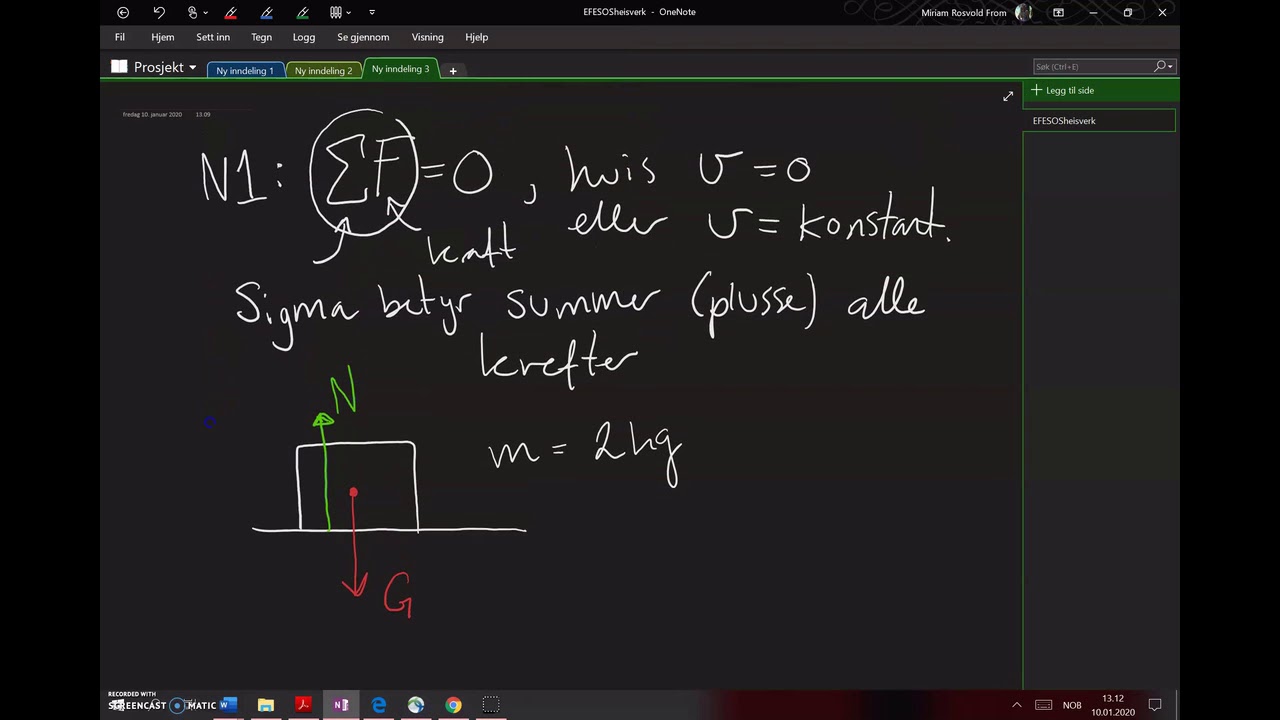 EFESOSheisverk - OneNote
Miriam Rosvold From
Fil Hjem Sett inn Tegn Logg Se gjennom Visning Hjelp
Prosjekt Ny inndeling 1 Ny inndeling 2 Ny inndeling 3
Søk (Ctrl+E)
Legg til side
EFESOSheisverk
fredag 10. januar 2020 13.09
N1: ΣF = 0, hvis v = 0
eller v = konstant.
kraft
Sigma betyr summer (plusse) alle
krefter
N
m = 2kg
G
RECORDED WITH
SCREENCAST MATIC
NOB
13.12
10.01.2020